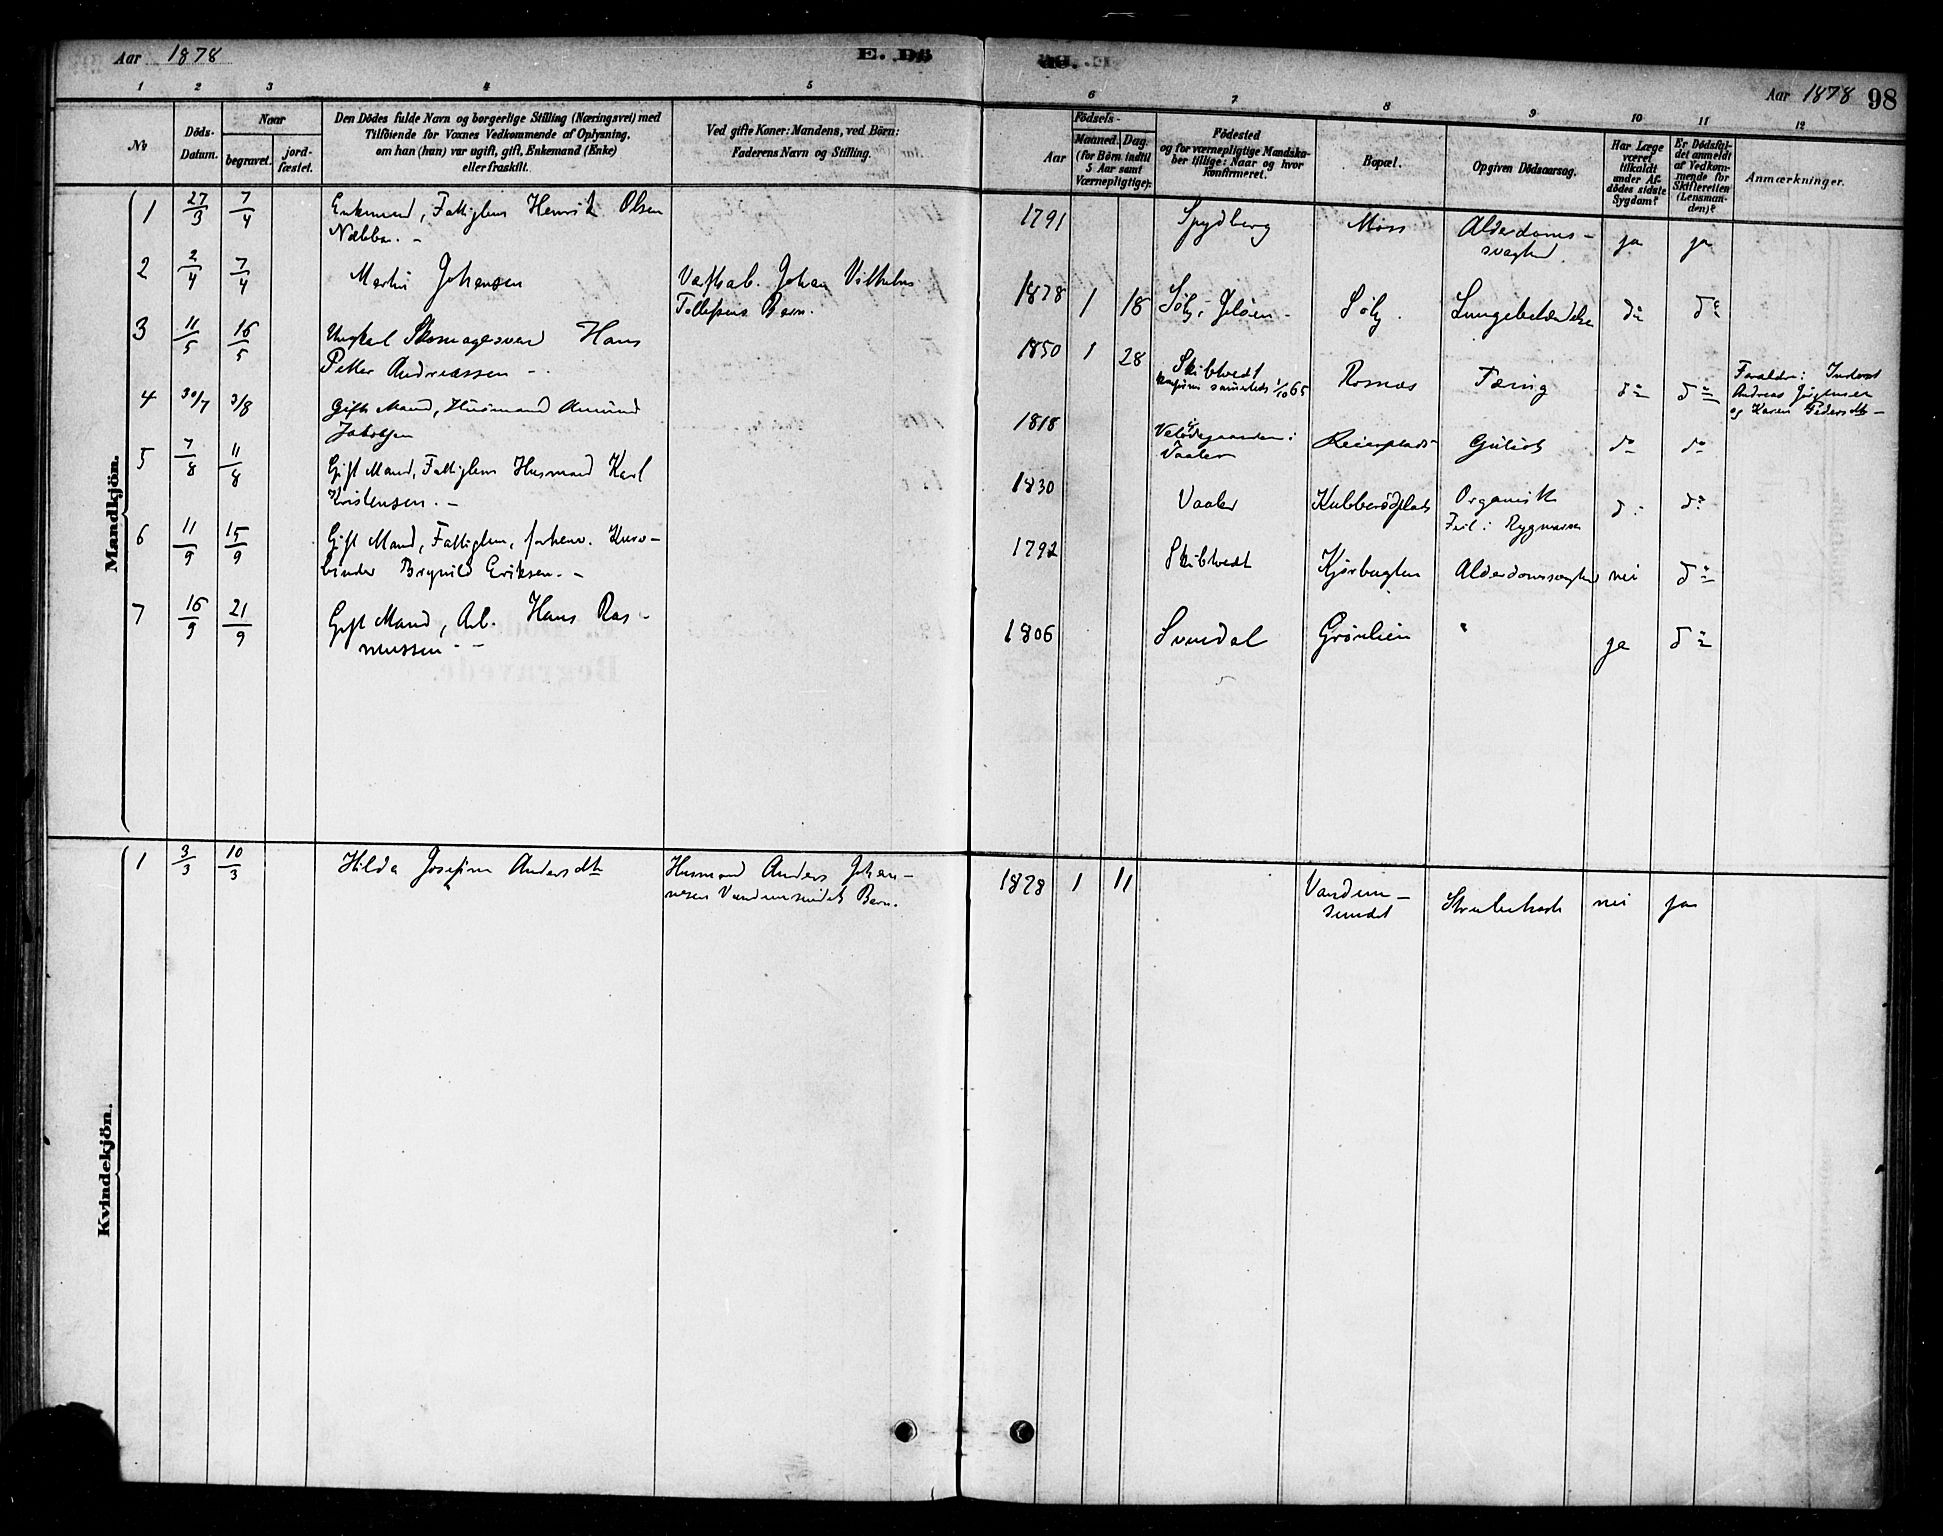 Aar 1878
E. Dö
de.
Aar 1878 98
1 2 3 4 5 6 7 8 9 10 11 12
No
Döds-
Datum.
Naar
begravet.
jord-
fæstet.
Den Dödes fulde Navn og borgerlige Stilling (Næringsvei) med
Tilföiende for Voxnes Vedkommende af Oplysning,
om han (hun) var ugift, gift, Enkemand (Enke)
eller fraskilt.
Ved gifte Koner: Mandens, ved Börn:
Faderens Navn og Stilling.
Födsels-
Aar
Maaned. Dag.
(for Börn indtil
5 Aar samt
Værnepligtige).
Födested
og for værnepligtige Mandska-
ber tillige: Naar og hvor
konfirmeret.
Bopæl.
Opgiven Dödsaarsag.
Har Læge
været
tilkaldt
under Af-
dödes sidste
Sygdom?
Er Dödsfal-
det anmeldt
af Vedkom-
mende for
Skifteretten
(Lensman-
den)?
Anmærkninger.
Mandkjön.
1 27/3 7/4 Enkemand, Fattiglem Henrik Olsen
Næbba. -
1791 Spydberg Moss Alderdoms-
svaghed ja ja
2 2/4 7/4 Martin Johansen
Johan Vilhelm
Tollefsens Barn.
1878 1 18 Jeløen - Lungebetændelse do do
3 11/5 16/5 Ungkarl Skomagersvend Hans
Petter Andreassen -.
1850 1 28 Skibtvedt
1/10 65 Rosnæs Tæring do do
Forældre: Inderst
Andreas Jørgensen
og Karen Pedersdtr -
4 30/7 3/8 Gift Mand, Husmand Amund
Jakobsen
1818
Vaaler Gulsot do do
5 7/8 11/8 Gift Mand, Fattiglem Husmand Karl
Kristensen. -
1830 Vaaler Kubberødplads Organisk
Feil i Rygmarven do do
6 11/9 15/9 Gift Mand, Fattiglem, forhenv. Kurv-
binder Brynild Eriksen. -
1792 Skibtvedt Kjørbugten Alderdomssvaghed nei do
7 16/9 21/9 Gift Mand, Arb. Hans Ras-
mussen - -
1806 Svindal Grønlien " ja do
Kvindekjön.
1 3/3 10/3 Hilda Josefine Andersdtr
Husmand Anders Johan-
nesen Vandemsundet Barn.
1878 1 11 Vandem-
sundet Strubehoste nei ja